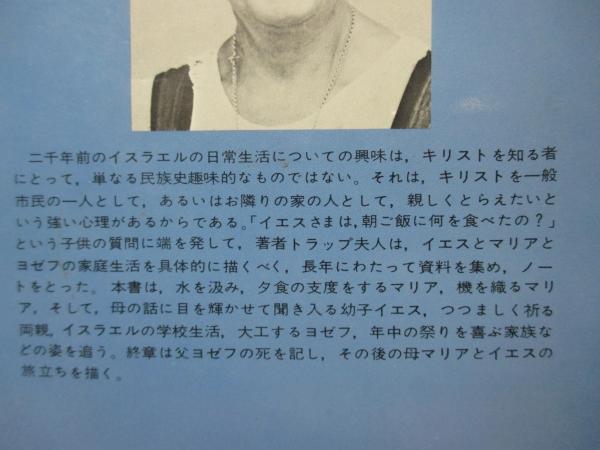 二千年前のイスラエルの日常生活についての興味は，キリストを知る者
にとって，単なる民族史趣味的なものではない。それは，キリストを一般
市民の一人として，あるいはお隣りの家の人として，親しくとらえたいと
いう強い心理があるからである。「イエスさまは，朝ご飯に何を食べたの？」
という子供の質問に端を発して，著者トラップ夫人は，イエスとマリアと
ヨゼフの家庭生活を具体的に描くべく，長年にわたって資料を集め，ノー
トをとった。本書は，水を汲み，夕食の支度をするマリア，機を織るマリ
ア，そして，母の話に目を輝かせて聞き入る幼子イエス，つつましく祈る
両親，イスラエルの学校生活，大工するヨゼフ，年中の祭りを喜ぶ家族な
どの姿を追う。終章は父ヨゼフの死を記し，その後の母マリアとイエスの
旅立ちを描く。